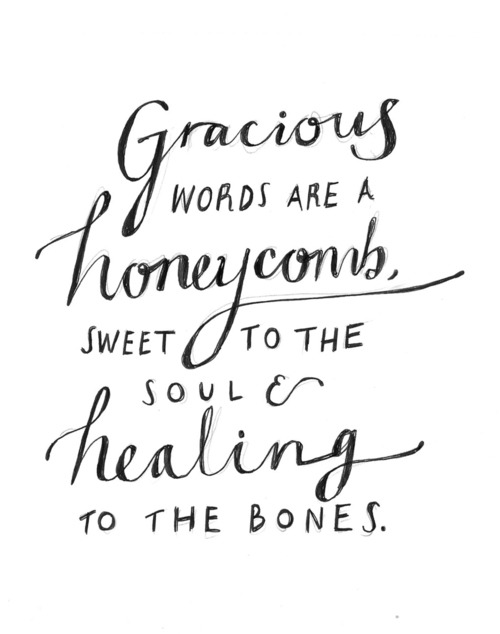 Gracious
WORDS ARE A
honeycomb,
SWEET TO THE
SOUL &
healing
TO THE BONES.